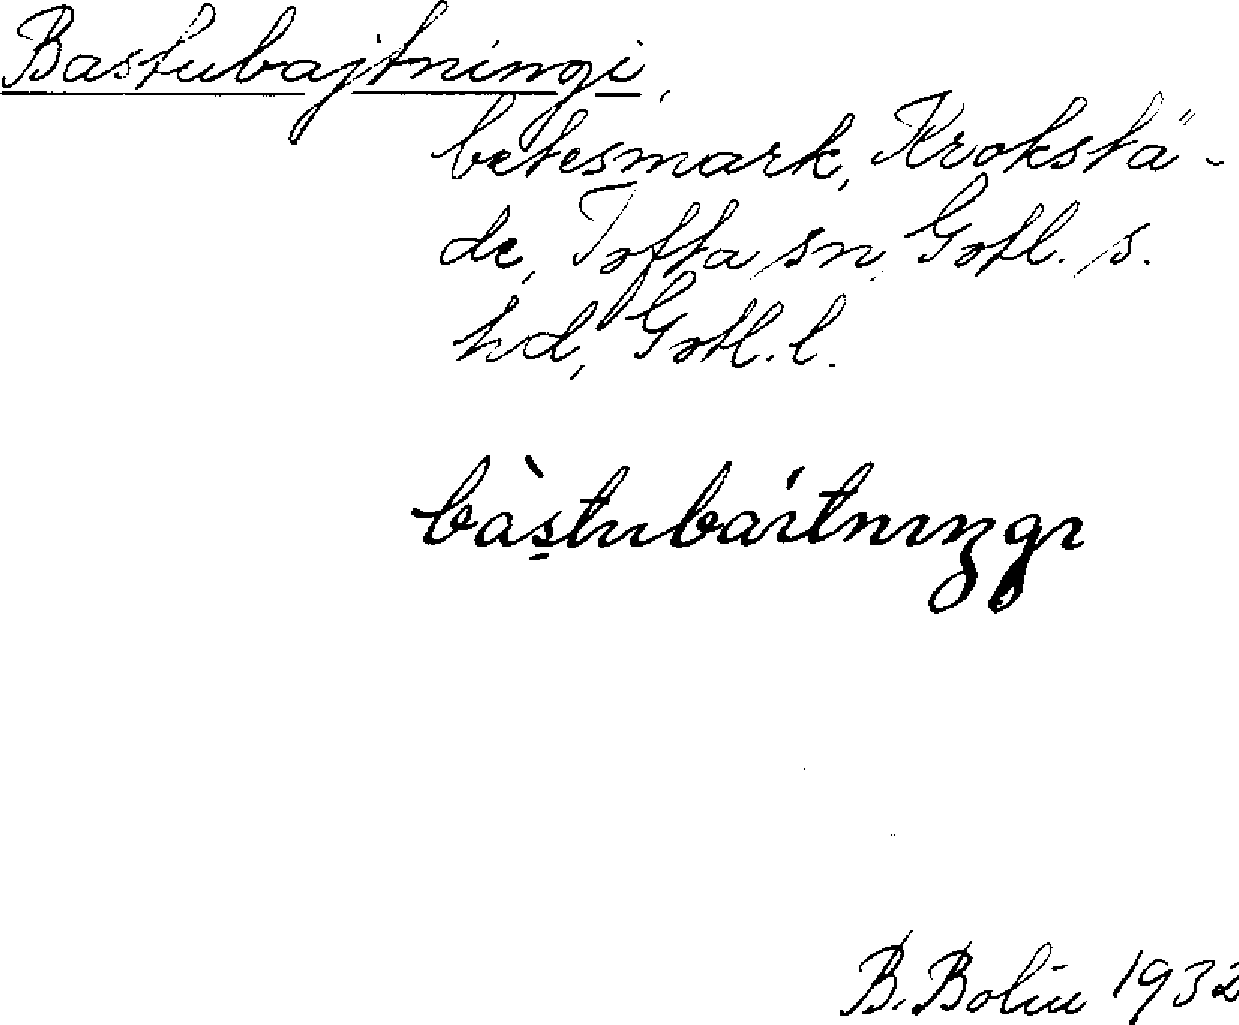 Bastubajtningi,
betesmark, Krokstä-
de, Tofta sn, Gotl. s.
hd, Gotl. l.
bàstubáitnıŋgı
B. Bolin 1932